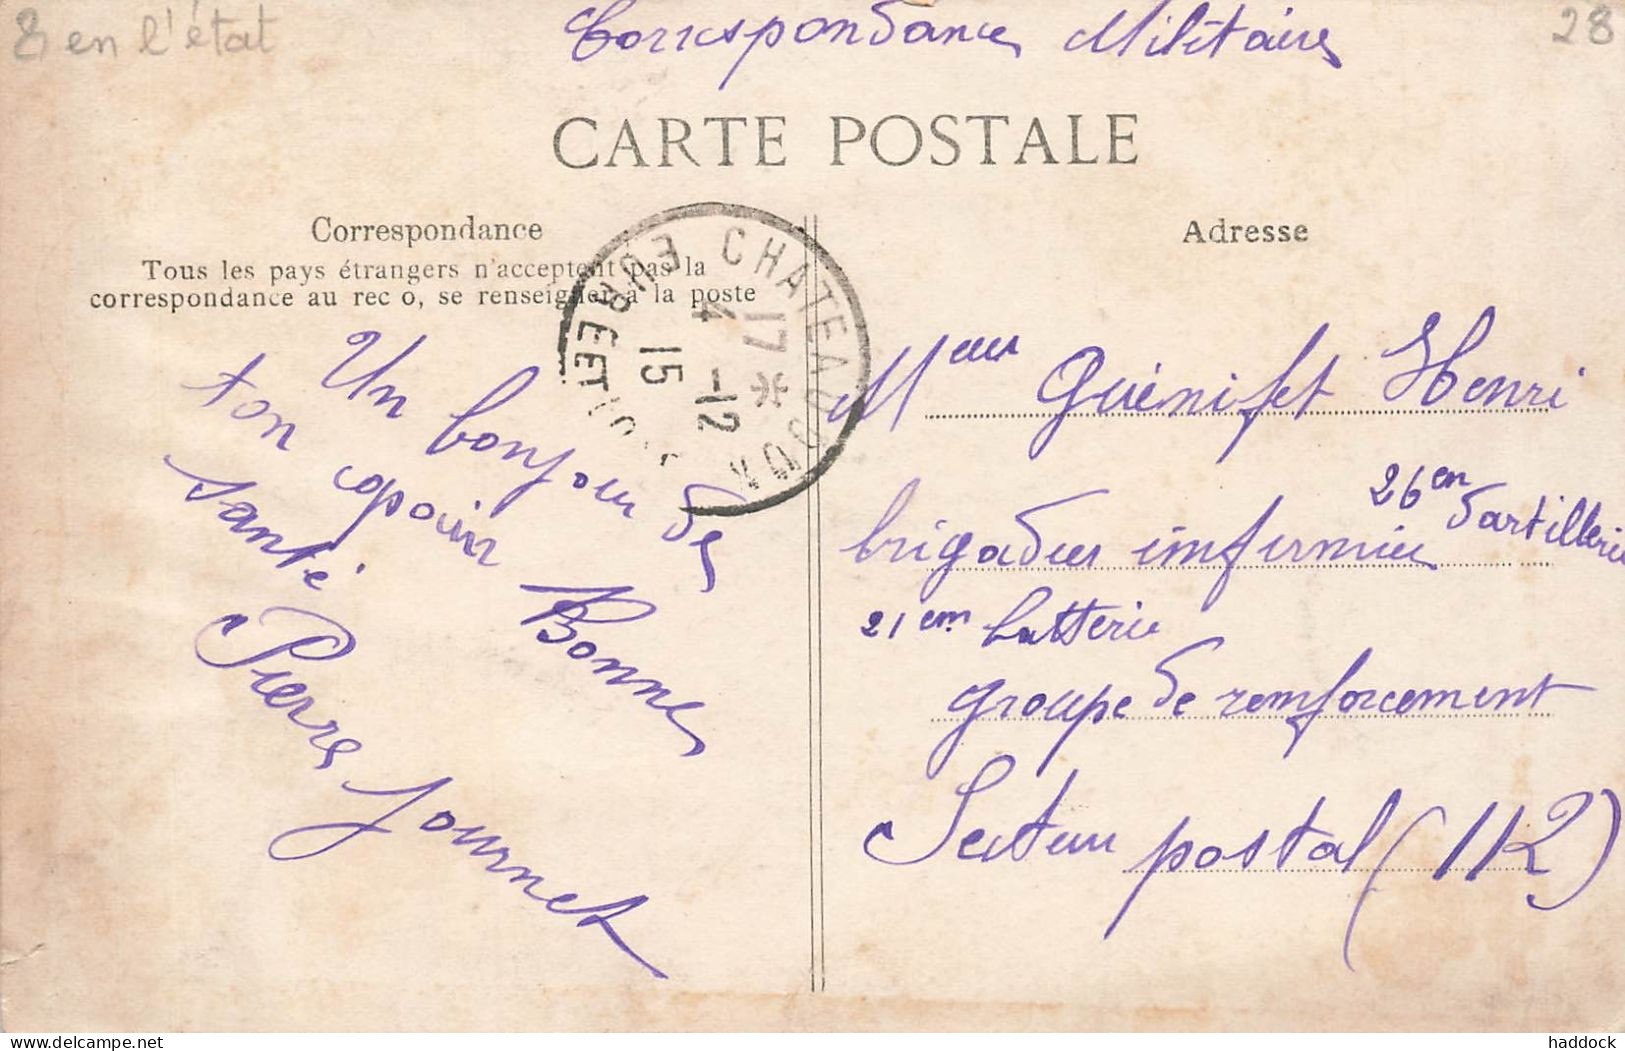 8 en l'état
28
Correspondance Militaire
CARTE POSTALE
Correspondance
Tous les pays étrangers n'acceptent pas la
correspondance au rec o, se renseigner à la poste
Adresse
CHATEAUDUN
EURE ET
17 *
4 -12
15
Un bonjour de
ton copain Bonne
santé
Pierre Journet
Guénifet Henri
brigadier infirmier 26em d'artillerie
21em batterie
groupe de renforcement
Secteur postal (112)
delcampe.net
haddock